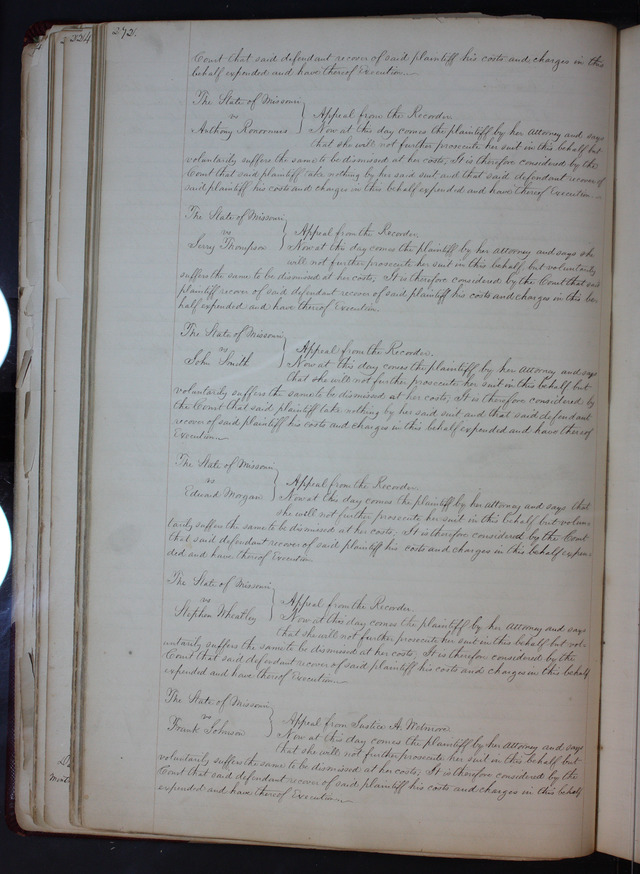 224
272.
Court that said defendant recover of said plaintiff his costs and charges in this
behalf expended and have thereof Execution
The State of Missouri
vs
Anthony
Appeal from the Recorder
Now at this day comes the plaintiff by her attorney and says
that she will not further prosecute her suit in this behalf but
voluntarily suffers the same to be dismissed at her costs, It is therefore considered by the
Court that said plaintiff take nothing by his said suit and that said defendant recover of
said plaintiff his costs and charges in this behalf expended and have thereof Execution
The State of Missouri
vs
Jerry Thompson
Appeal from the Recorder
Now at this day comes the plaintiff by her attorney and says she
will not further prosecute her suit in this behalf but voluntarily
suffers the same to be dismissed at her costs; It is therefore considered by the Court that said
plaintiff recover of said defendant recover of said plaintiff his costs and charges in this be-
half expended and have thereof Execution.
The State of Missouri
vs
John Smith
Appeal from the Recorder.
Now at this day comes the plaintiff by her attorney and says
that she will not further prosecute her suit in this behalf but
voluntarily suffers the same to be dismissed at her costs; It is therefore considered by
the Court that said plaintiff take nothing by her said suit and that said defendant
recover of said plaintiff his costs and charges in this behalf expended and have thereof
Execution
The State of Missouri
vs
Edward Morgan
Appeal from the Recorder
Now at this day comes the plaintiff by her attorney and says that
she will not further prosecute her suit in this behalf but volun-
tarily suffer the same to be dismissed at her costs, It is therefore considered by the Court
that said defendant recover of said plaintiff his costs and charges in this behalf expen-
ded and have thereof Execution
The State of Missouri
vs
Stephen Wheatley
Appeal from the Recorder
Now at this day comes the plaintiff by her attorney and says
that she will not further prosecute her suit in this behalf but vol-
untarily suffers the same to be dismissed at her costs; It is therefore considered by the
Court that said defendant recover of said plaintiff his costs and charges in this behalf
expended and have thereof Execution
The State of Missouri
vs
Frank Johnson
Appeal from Justice A. Wetmore
Now at this day comes the plaintiff by her attorney and says
that she will not further prosecute her suit in this behalf but
voluntarily suffers the same to be dismissed at her costs; It is therefore considered by the
Court that said defendant recover of said plaintiff his costs and charges in this behalf
expended and have thereof Execution